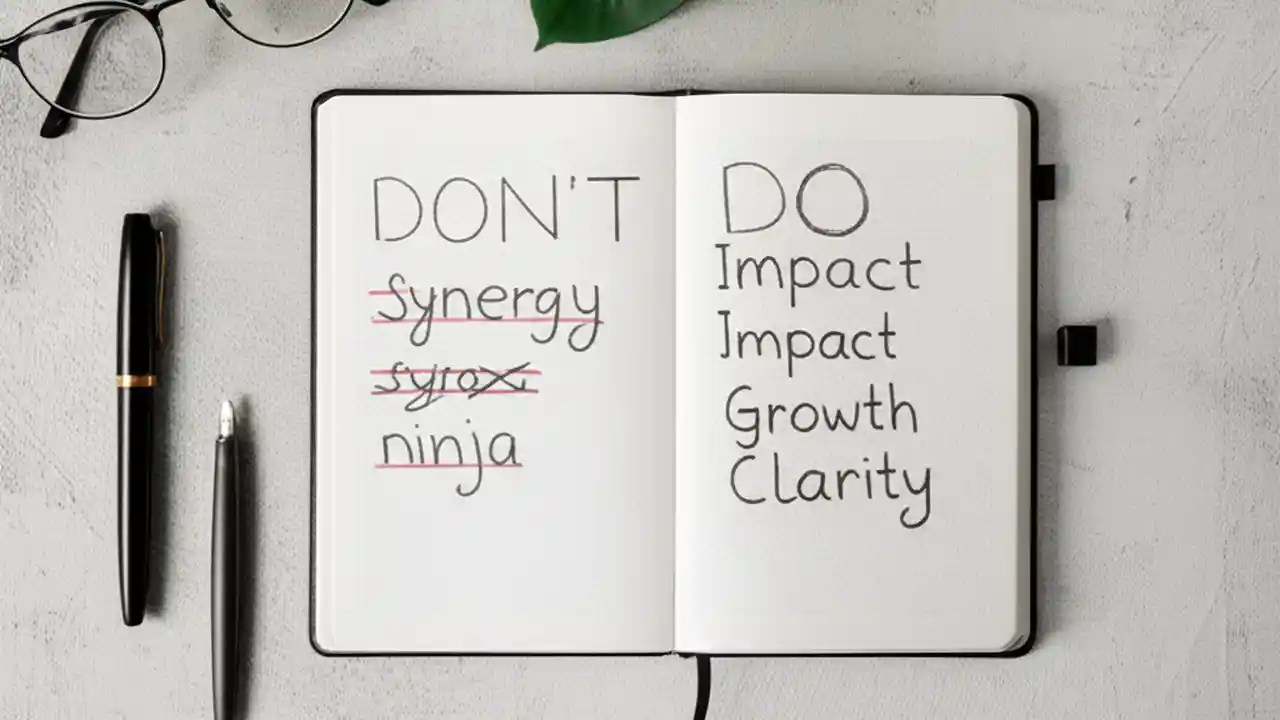 DON'T
Synergy
ninja
DO
Impact
Impact
Growth
Clarity